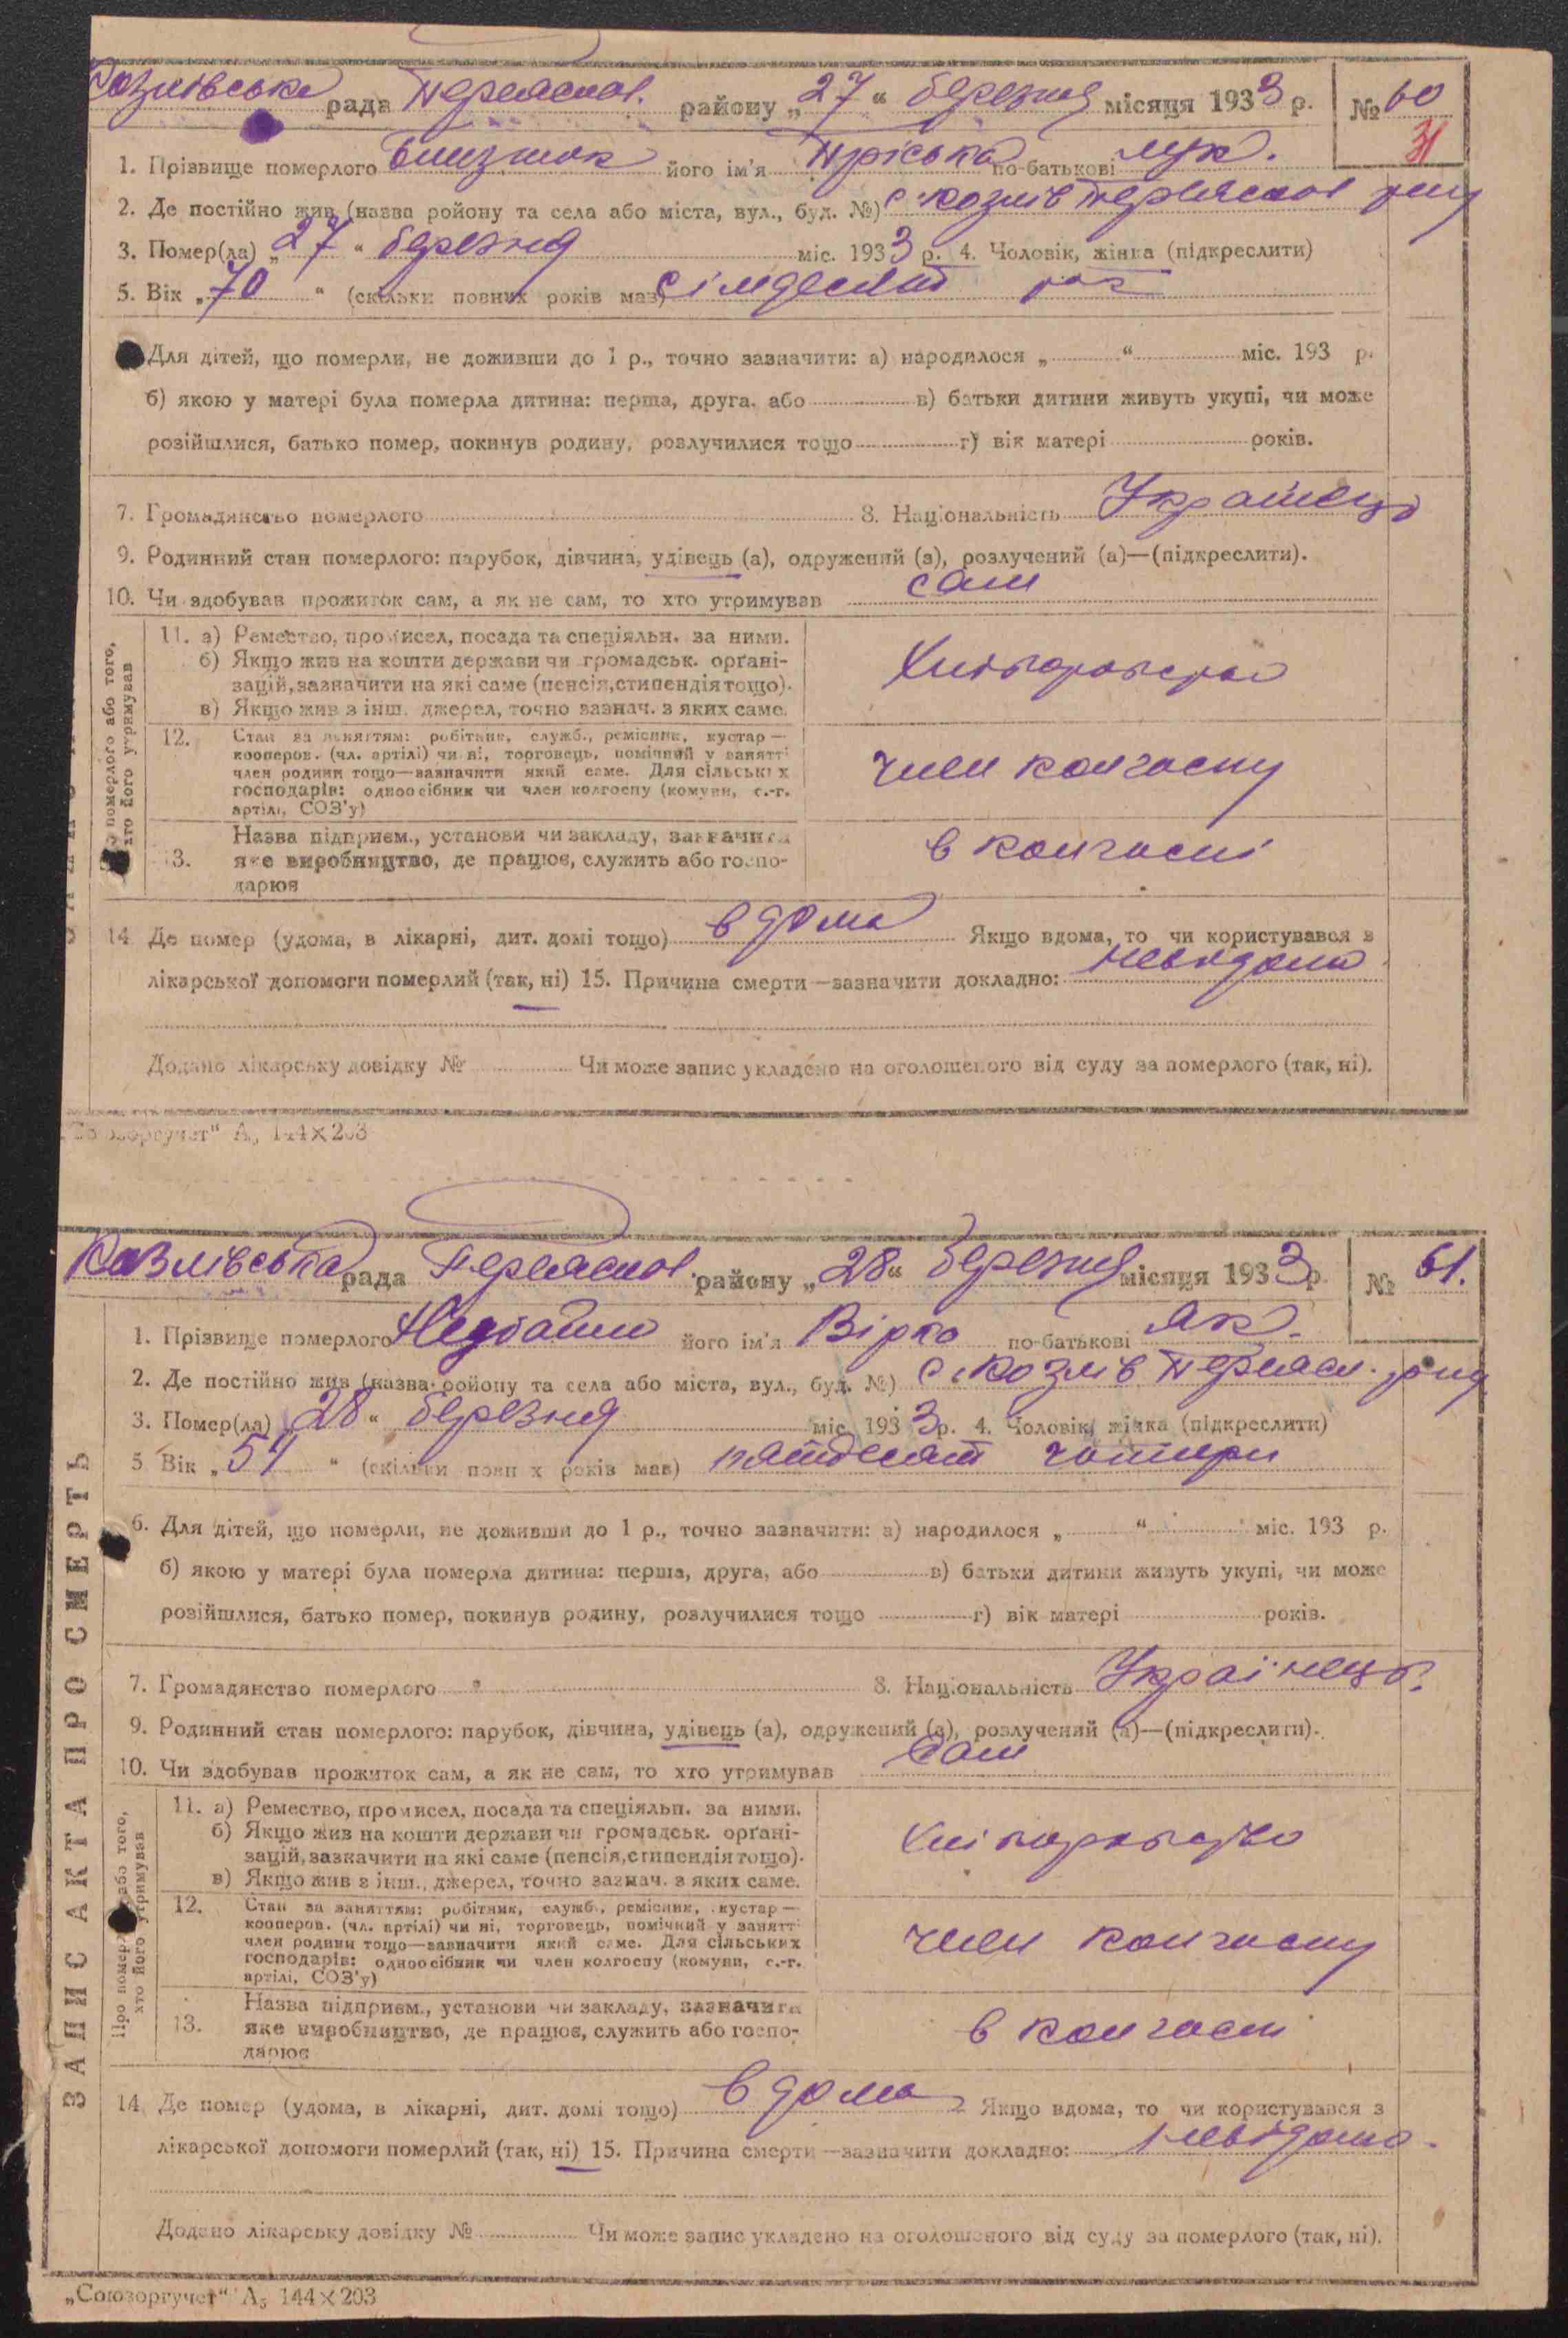 Козлівська рада Переяслов. району „27“ березня місяця 1933 р. № 60
31
1. Прізвище померлого Близнюк його ім'я Пріська по-батькові Лук.
2. Де постійно жив (назва ройону та села або міста, вул., буд. №) с Козлів Переяслов рну
3. Помер(ла) „27“ березня міс. 1933 р. 4. Чоловік, жінка (підкреслити)
5. Вік „70“ (скільки повних років мав) сімдесят
Для дітей, що померли, не доживши до 1 р., точно зазначити: а) народилося „ “ міс. 193 р.
б) якою у матері була померла дитина: перша, друга, або в) батьки дитини живуть укупі, чи може
розійшлися, батько помер, покинув родину, розлучилися тощо г) вік матері років.
7. Громадянство померлого 8. Національність Українець
9. Родинний стан померлого: парубок, дівчина, удівець (а), одружений (а), розлучений (а)—(підкреслити).
10. Чи здобував прожиток сам, а як не сам, то хто утримував сам
померлого або того,
хто його утримував
11. а) Ремество, промисел, посада та спеціяльн. за ними.
б) Якщо жив на кошти держави чи громадськ. орґані-
зацій, зазначити на які саме (пенсія, стипендія тощо).
в) Якщо жив з інш. джерел, точно зазнач. з яких саме.
Хліборобство
12. Стан за заняттям: робітник, служб., ремісник, кустар —
кооперов. (чл. артілі) чи ні, торговець, помічний у занятті
член родини тощо—зазначити який саме. Для сільських
господарів: одноосібник чи член колгоспу (комуни, с.-г.
артілі, СОЗ'у)
член колгоспу
13. Назва підприєм., установи чи закладу, зазначити
яке виробництво, де працює, служить або госпо-
дарює
в колгоспі
14 Де помер (удома, в лікарні, дит. домі тощо) в дома Якщо вдома, то чи користувався з
лікарської допомоги померлий (так, ні) 15. Причина смерти—зазначити докладно: невідома
Додано лікарську довідку № Чи може запис укладено на оголошеного від суду за померлого (так, ні).
„Союзоргучет“ А5 144×203
Козлівська рада Переяслов. району „28“ березня місяця 1933 р. № 61.
1. Прізвище померлого Недбайло його ім'я Вірка по-батькові Як.
2. Де постійно жив (назва ройону та села або міста, вул., буд. №) с. Козлів Переясл. рну
3. Помер(ла) „28“ березня міс. 1933 р. 4. Чоловік, жінка (підкреслити)
5 Вік „54“ (скільки повних років мав) пятдесят чотири
6. Для дітей, що померли, не доживши до 1 р., точно зазначити: а) народилося „ “ міс. 193 р.
б) якою у матері була померла дитина: перша, друга, або в) батьки дитини живуть укупі, чи може
розійшлися, батько помер, покинув родину, розлучилися тощо г) вік матері років.
7. Громадянство померлого 8. Національність Українець.
9. Родинний стан померлого: парубок, дівчина, удівець (а), одружений (а), розлучений (а)—(підкреслити).
10. Чи здобував прожиток сам, а як не сам, то хто утримував сам
ЗАПИС АКТА ПРО СМЕРТЬ
Про померлого або того,
хто його утримував
11. а) Ремество, промисел, посада та спеціяльн. за ними.
б) Якщо жив на кошти держави чи громадськ. орґані-
зацій, зазначити на які саме (пенсія, стипендія тощо).
в) Якщо жив з інш., джерел, точно зазнач. з яких саме.
Хліборобство
12. Стан за заняттям: робітник, служб., ремісник, кустар —
кооперов. (чл. артілі) чи ні, торговець, помічний у занятті
член родини тощо—зазначити який саме. Для сільських
господарів: одноосібник чи член колгоспу (комуни, с.-г.
артілі, СОЗ'у)
член колгоспу
13. Назва підприєм., установи чи закладу, зазначити
яке виробництво, де працює, служить або госпо-
дарює
в колгоспі
14. Де помер (удома, в лікарні, дит. домі тощо) в дома Якщо вдома, то чи користувався з
лікарської допомоги померлий (так, ні) 15. Причина смерти—зазначити докладно: невідома.
Додано лікарську довідку № Чи може запис укладено на оголошеного від суду за померлого (так, ні).
„Союзоргучет“ А5 144×203